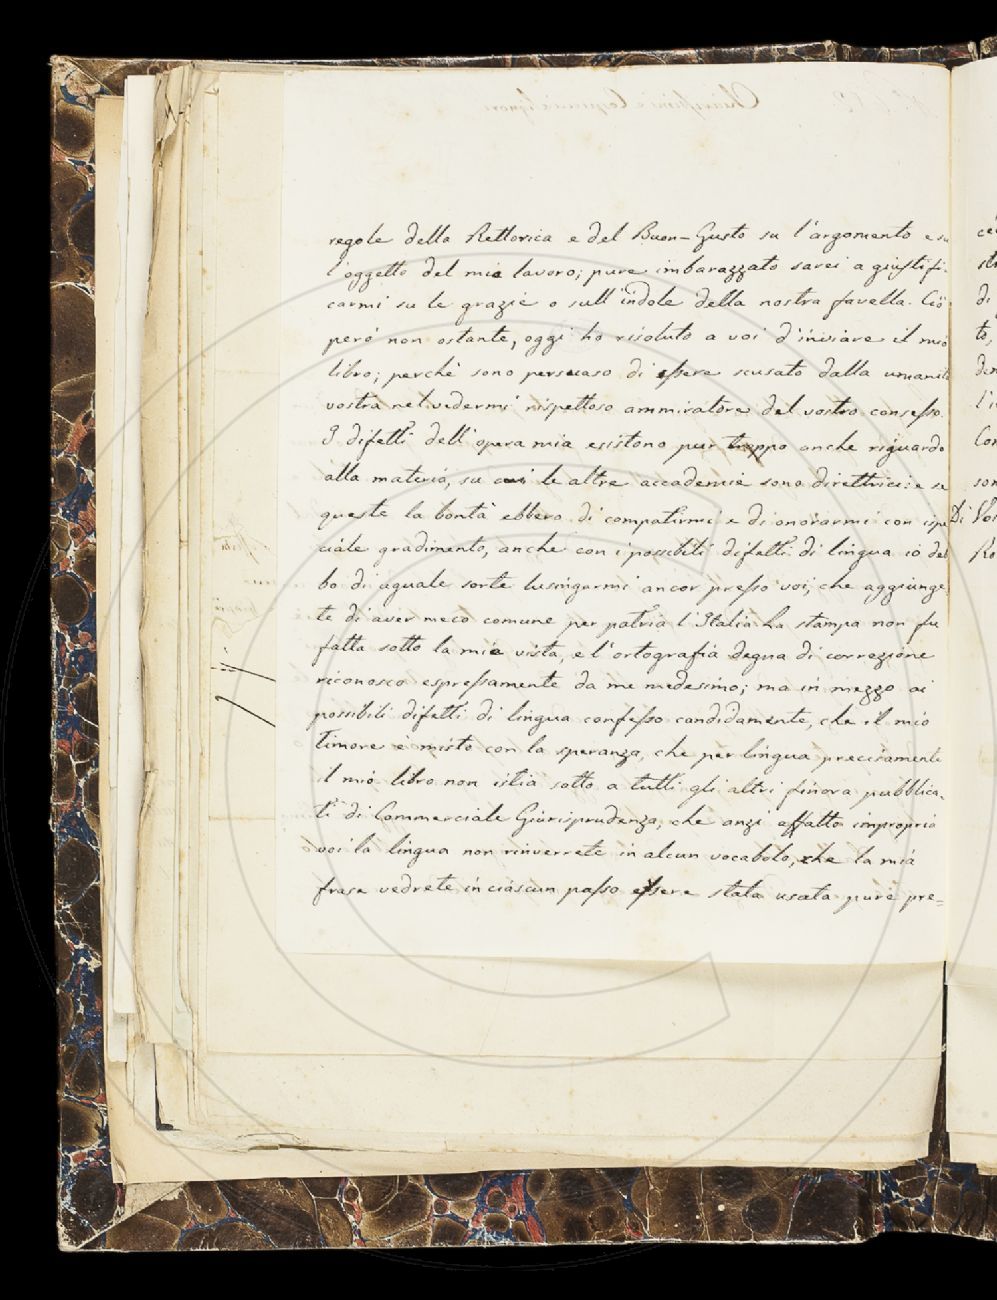 regole della Rettorica e del Buon-Gusto su l'argomento e su
l'oggetto del mio lavoro; pure imbarazzato sarei a giustifi-
carmi su le grazie o sull'indole della nostra favella. Ciò
però non ostante, oggi ho risoluto a voi d'inviare il mio
libro; perchè sono persuaso di essere scusato dalla umanità
vostra nel vedermi rispettoso ammiratore del vostro consesso.
I difetti dell'opera mia esistono pur troppo anche riguardo
alla materia, su cui le altre accademie sono direttrici: e se
queste la bontà ebbero di compatirmi e di onorarmi con ispe
ciale gradimento, anche con i possibili difetti di lingua io deb
bo di uguale sorte lusingarmi ancor presso voi, che aggiunge
te di aver meco comune per patria l'Italia. La stampa non fu
fatta sotto la mia vista, e l'ortografia degna di correzione
riconosco espressamente da me medesimo; ma in mezzo ai
possibili difetti di lingua confesso candidamente, che il mio
timore è misto con la speranza, che per lingua precisamente
il mio libro non istia sotto a tutti gli altri finora pubblica-
ti di Commerciale Giurisprudenza, che anzi affatto impropria
voi la lingua non rinverrete in alcun vocabolo, che la mia
frase vedrete in ciascun passo essere stata usata pure pre=
Di